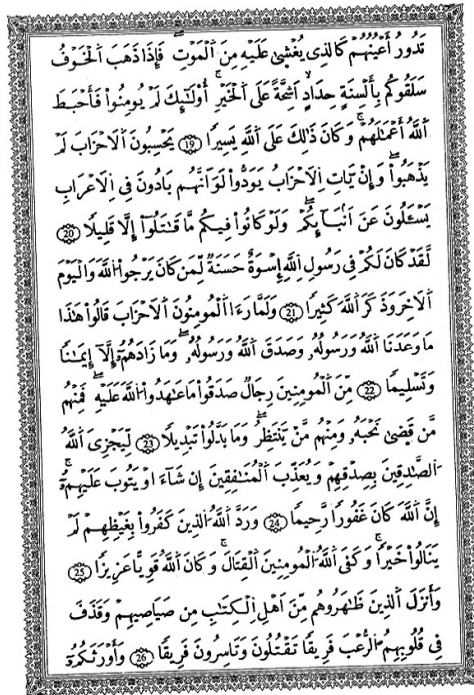 تَدُورُ أَعْيُنُهُمْ كَالذِي يُغْشىٰ عَلَيْهِ مِنَ اَلْمَوْتِۖ فَإِذَا ذَهَبَ اَلْخَوْفُ
سَلَقُوكُم بِأَلْسِنَةٍ حِدَادٍ اَشِحَّةً عَلَى اَلْخَيْرِۚ أُوْلَٰٓئِكَ لَمْ يُومِنُواْ فَأَحْبَطَ
اَللَّهُ أَعْمَٰلَهُمْۚ وَكَانَ ذَٰلِكَ عَلَى اَللَّهِ يَسِيراٗ 19 يَحْسِبُونَ اَلَاحْزَابَ لَمْ
يَذْهَبُواْۖ وَإِنْ يَّاتِ اِلَاحْزَابُ يَوَدُّواْ لَوَ اَنَّهُم بَادُونَ فِي اِلَاعْرَابِ
يَسْـَٔلُونَ عَنَ اَنۢبَآئِكُمْۖ وَلَوْ كَانُواْ فِيكُم مَّا قَٰتَلُوٓاْ إِلَّا قَلِيلاٗ 20
لَّقَدْ كَانَ لَكُمْ فِي رَسُولِ اِللَّهِ إِسْوَةٌ حَسَنَةٞ لِّمَن كَانَ يَرْجُواْ اُللَّهَ وَالْيَوْمَ
اَلَاخِرَ وَذَكَرَ اَللَّهَ كَثِيراٗ 21 وَلَمَّا رَءَا اَلْمُومِنُونَ اَلَاحْزَابَ قَالُواْ هَٰذَا
مَا وَعَدَنَا اَللَّهُ وَرَسُولُهُۥ وَصَدَقَ اَللَّهُ وَرَسُولُهُۥۖ وَمَا زَادَهُمُۥٓ إِلَّآ إِيمَٰناٗ
وَتَسْلِيماٗ 22 مِّنَ اَلْمُومِنِينَ رِجَالٞ صَدَقُواْ مَا عَٰهَدُواْ اُللَّهَ عَلَيْهِۖ فَمِنْهُم
مَّن قَضىٰ نَحْبَهُۥ وَمِنْهُم مَّنْ يَّنتَظِرُۖ وَمَا بَدَّلُواْ تَبْدِيلاٗ 23 لِّيَجْزِيَ اَللَّهُ
اُلصَّٰدِقِينَ بِصِدْقِهِمْ وَيُعَذِّبَ اَلْمُنَٰفِقِينَ إِن شَآءَ اَوْ يَتُوبَ عَلَيْهِمُۥٓۚ
إِنَّ اَللَّهَ كَانَ غَفُوراٗ رَّحِيماٗ 24 وَرَدَّ اَللَّهُ اُلذِينَ كَفَرُواْ بِغَيْظِهِمْ لَمْ
يَنَالُواْ خَيْراٗۚ وَكَفَى اَللَّهُ اُلْمُومِنِينَ اَلْقِتَالَۚ وَكَانَ اَللَّهُ قَوِيّاً عَزِيزاٗ 25
وَأَنزَلَ اَلذِينَ ظَٰهَرُوهُم مِّنَ اَهْلِ اِلْكِتَٰبِ مِن صَيَاصِيهِمْ وَقَذَفَ
فِي قُلُوبِهِمُ اُلرُّعْبَ فَرِيقاٗ تَقْتُلُونَ وَتَاسِرُونَ فَرِيقاٗ 26 وَأَوْرَثَكُمُۥٓ